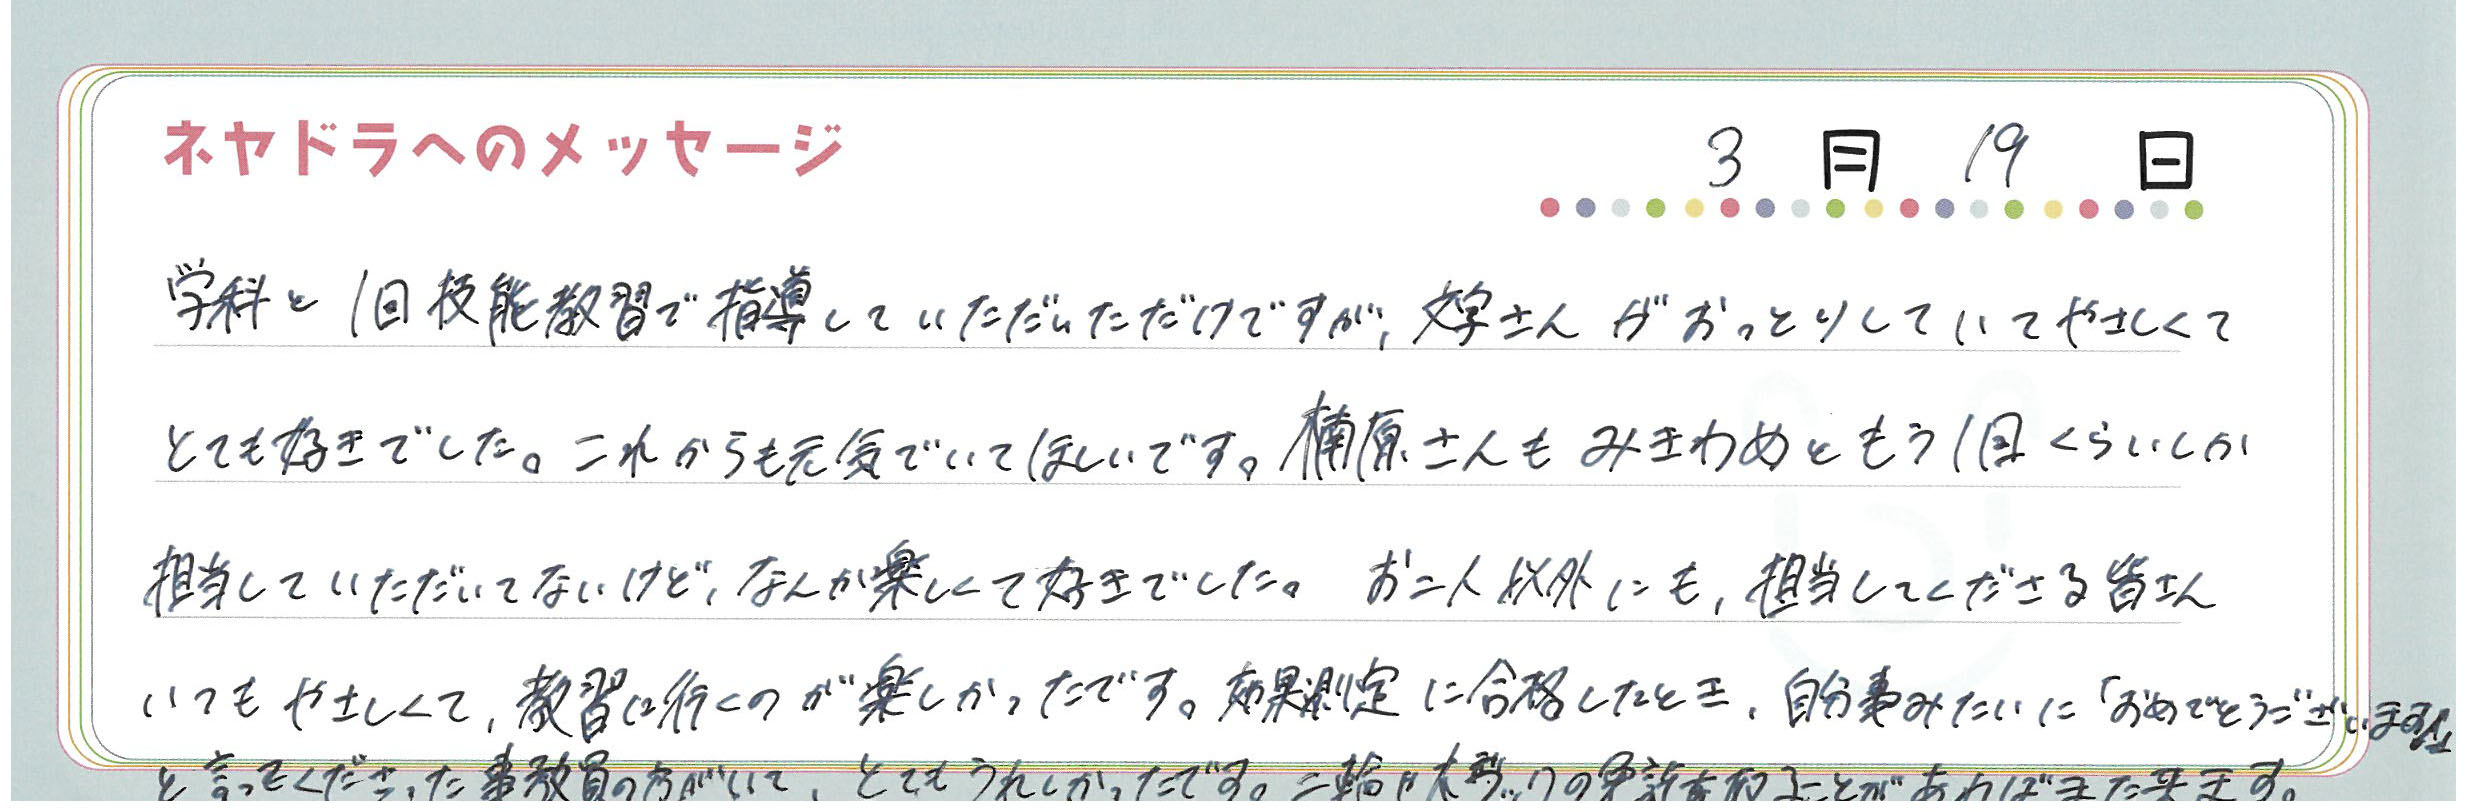 ネヤドラへのメッセージ
3月19日
学科と1回技能教習で指導していただいただけですが、文字さんがおっとりしていてやさしくて
とても好きでした。これからも元気でいてほしいです。楠原さんもみきわめともう1回くらいしか
担当していただいてないけど、なんか楽しくて好きでした。 お二人以外にも、担当してくださる皆さん
いつもやさしくて、教習に行くのが楽しかったです。効果測定に合格したとき、自分事みたいに「おめでとうございます!!」
と言ってくださった事教員の方がいて、とてもうれしかったです。二輪や大型の免許を取ることがあればまた来ます。